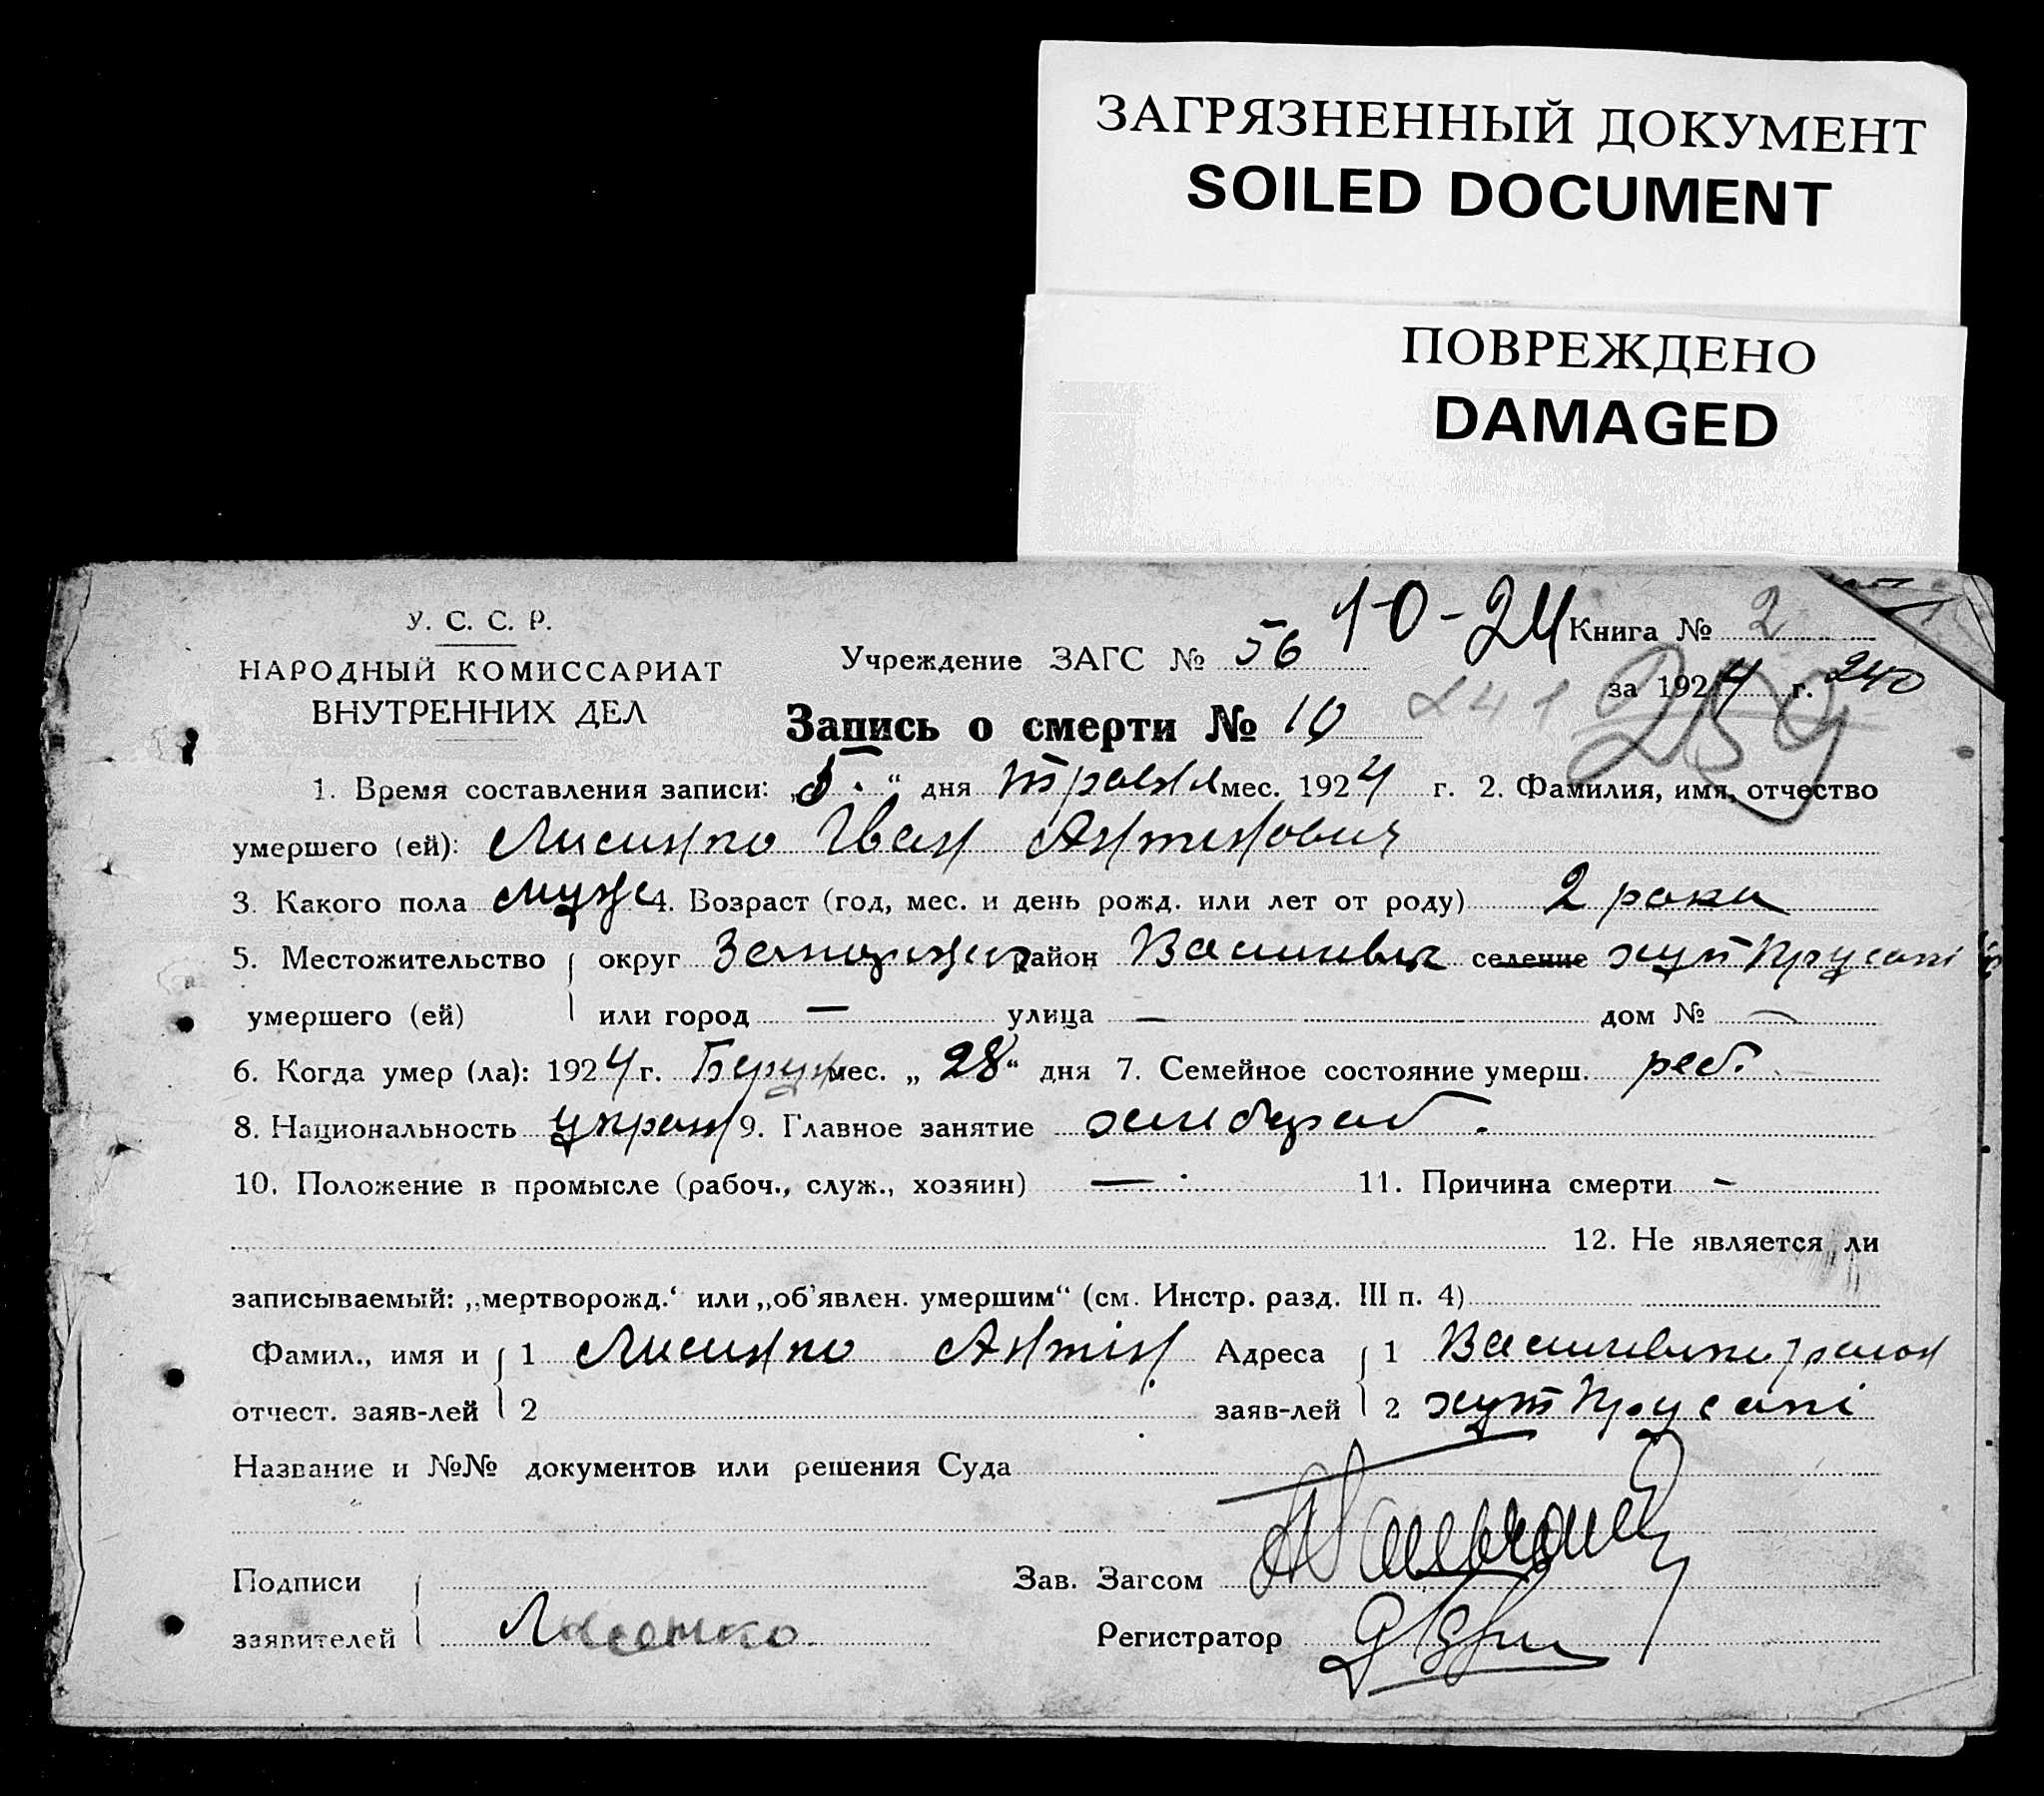 ЗАГРЯЗНЕННЫЙ ДОКУМЕНТ
SOILED DOCUMENT
ПОВРЕЖДЕНО
DAMAGED
У. С. С. Р.
НАРОДНЫЙ КОМИССАРИАТ
ВНУТРЕННИХ ДЕЛ
10-24
Учреждение ЗАГС № 56
Книга № 2
за 1924 г. 240
241 239
Запись о смерти № 10
1. Время составления записи: „5“ дня травня мес. 1924 г. 2. Фамилия, имя, отчество
умершего (ей): Лисенко Иван Антонович
3. Какого пола муж 4. Возраст (год, мес. и день рожд. или лет от роду) 2 роки
5. Местожительство округ район селение хут
умершего (ей) или город — улица — дом № —
6. Когда умер (ла): 1924 г. Берез мес. „28“ дня 7. Семейное состояние умерш. реб.
8. Национальность украин 9. Главное занятие хлебороб.
10. Положение в промысле (рабоч., служ., хозяин) — 11. Причина смерти -
12. Не является ли
записываемый: „мертворожд.‘ или „об'явлен. умершим“ (см. Инстр. разд. III п. 4)
Фамил., имя и 1 Лисенко Адреса 1 район
отчест. заяв-лей 2 заяв-лей 2 хут
Название и №№ документов или решения Суда
Подписи Зав. Загсом
заявителей Лисенко Регистратор